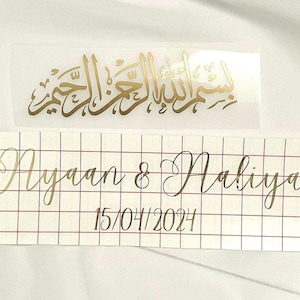 بسم الله الرحمن الرحيم
Nyaan & Naliya
15/04/2024